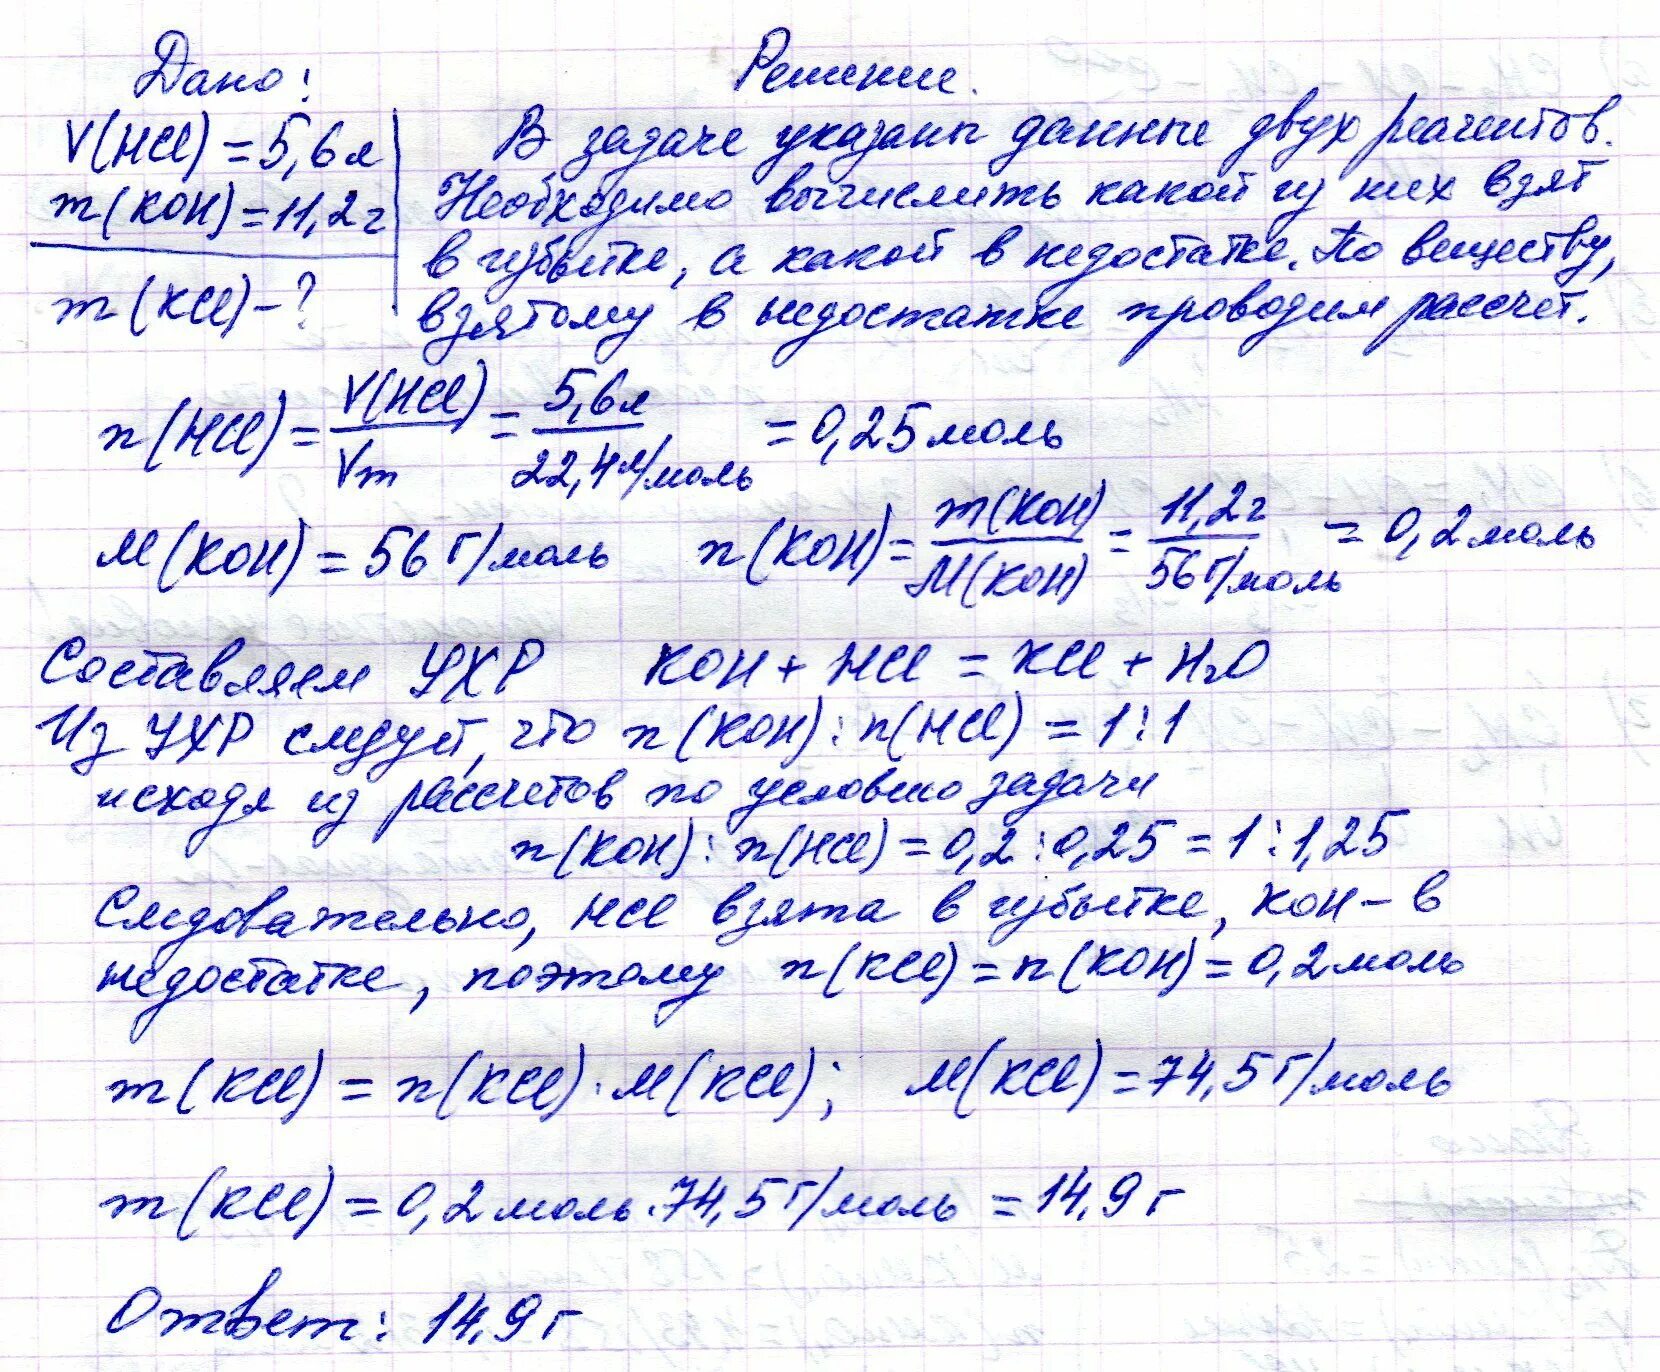 Дано:
V(HCl) = 5,6 л
m(KOH) = 11,2 г
m(KCl) - ?
Решение.
В задаче указаны данные двух реагентов.
Необходимо вычислить какой из них взят
в избытке, а какой в недостатке. По веществу,
взятому в недостатке проводим рассчет.
n(HCl) = V(HCl)/Vm = 5,6 л/22,4 л/моль = 0,25 моль
M(KOH) = 56 г/моль n(KOH) = m(KOH)/M(KOH) = 11,2 г/56 г/моль = 0,2 моль
Составляем УХР KOH + HCl = KCl + H2O
Из УХР следует, что n(KOH) : n(HCl) = 1 : 1
исходя из рассчетов по условию задачи
n(KOH) : n(HCl) = 0,2 : 0,25 = 1 : 1,25
Следовательно, HCl взята в избытке, KOH - в
недостатке, поэтому n(KCl) = n(KOH) = 0,2 моль
m(KCl) = n(KCl) · M(KCl); M(KCl) = 74,5 г/моль
m(KCl) = 0,2 моль · 74,5 г/моль = 14,9 г
Ответ: 14,9 г